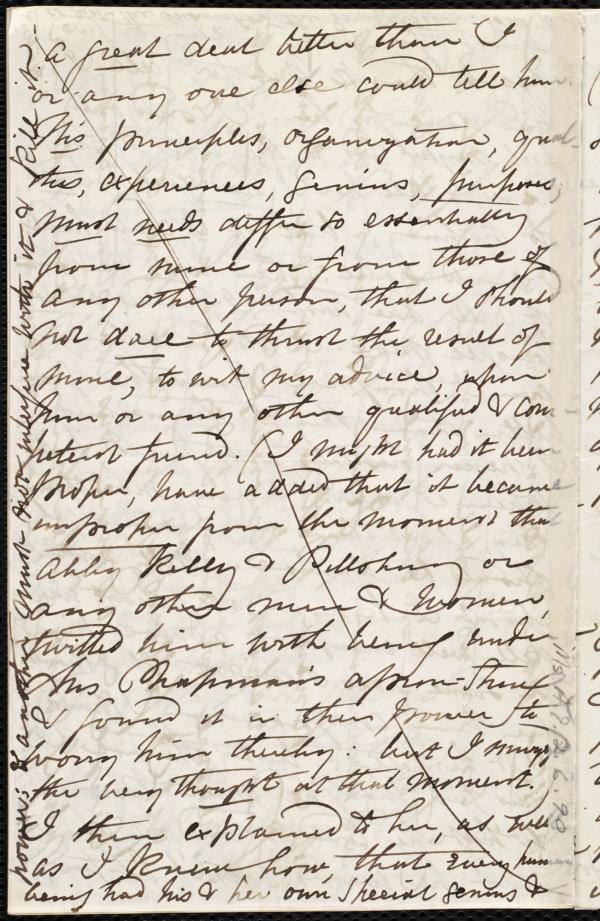 a great deal better than I
or any one else could tell him.
His principles, organization, quali-
ties, experiences, genius, purposes,
must needs differ so essentially
from mine or from those of
any other person, that I should
not dare to thrust the result of
mine, to wit my advice, upon
him or any other qualified & com
petent friend. (I might had it been
proper, have added that it became
improper from the moment that
Abby Kelly & Pillsbury or
any other men & women,
twitted him with being under
Mrs Chapman's apron-string
& found it in their power to
worry him thereby: but I smugg
the very thought at that moment.)
I then explained to her, as well
as I knew how, that every human
being had his & her own special genius &
power: & another must not interfere with it & kill it.